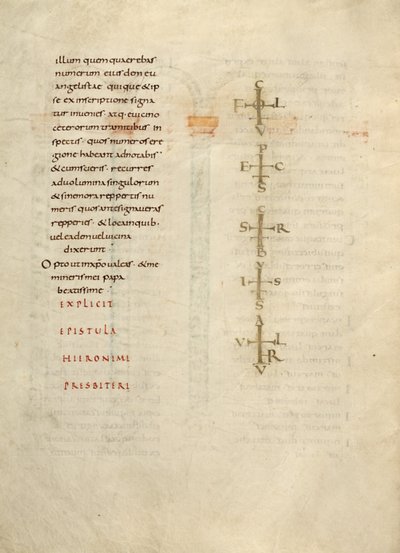 illum quem quaerebas
numerum eiusdem eu
angelistae quique & ip
se ex inscriptione signa
tur inuenies · atq· e uicino
ceterorum tramitibus in
spectis · quos numeros e re
gione habeant adnotabis
& cum scieris · recurres
ad uolumina singulorum
& sine mora reppertis nu
meris quos ante signaueras
repperies · & loca in quib·
uel eadem uel uicina
dixerunt
Opto ut in xpo ualeas · & me
mineris mei papa
beatissime
EXPLICIT
EPISTULA
HIERONIMI
PRESBITERI
C
L
V
P
E C
S
C
S R
V
I S
S
A
V L
R
V